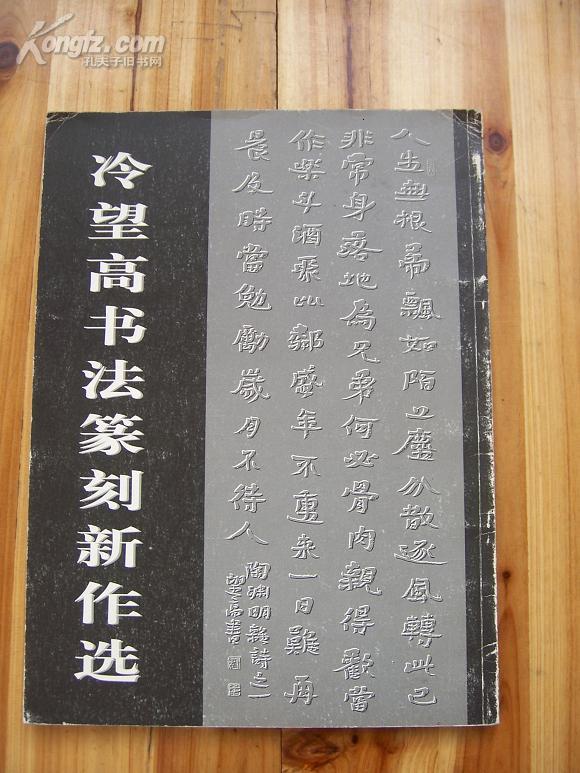 Kongfz.com
孔夫子旧书网
冷望高书法篆刻新作选
人生無根蒂飄如陌上塵分散逐風轉此已
非常身落地為兄弟何必骨肉親得歡當
作樂斗酒聚比鄰盛年不重來一日難再
晨及時當勉勵歲月不待人
陶淵明雜詩之一
望高書